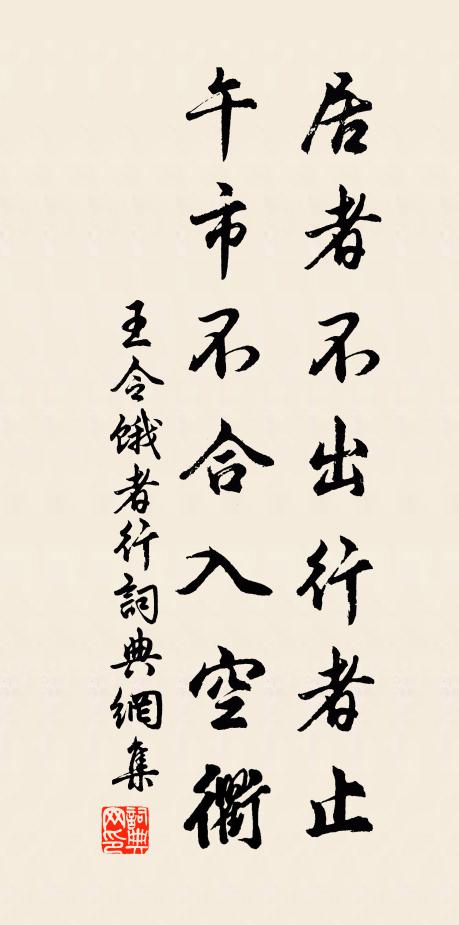 居者不出行者止
午市不合入空衢
王令餓者行詞典網集
詞典
网印